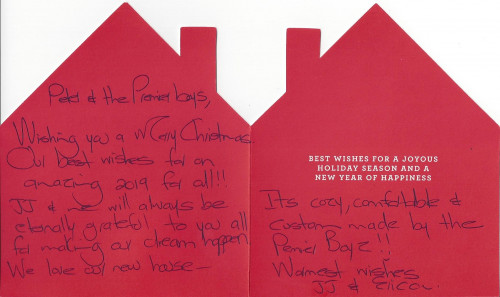 Pete & the Premier boys,
Wishing you a Merry Christmas
Our best wishes for an
amazing 2019 for all!!
JJ & me will always be
eternally grateful to you all
for making our dream happen
We love our new house —
BEST WISHES FOR A JOYOUS
HOLIDAY SEASON AND A
NEW YEAR OF HAPPINESS
Its cozy, comfortable &
custom made by the
Premier Boyz!!
Warmest wishes
JJ &